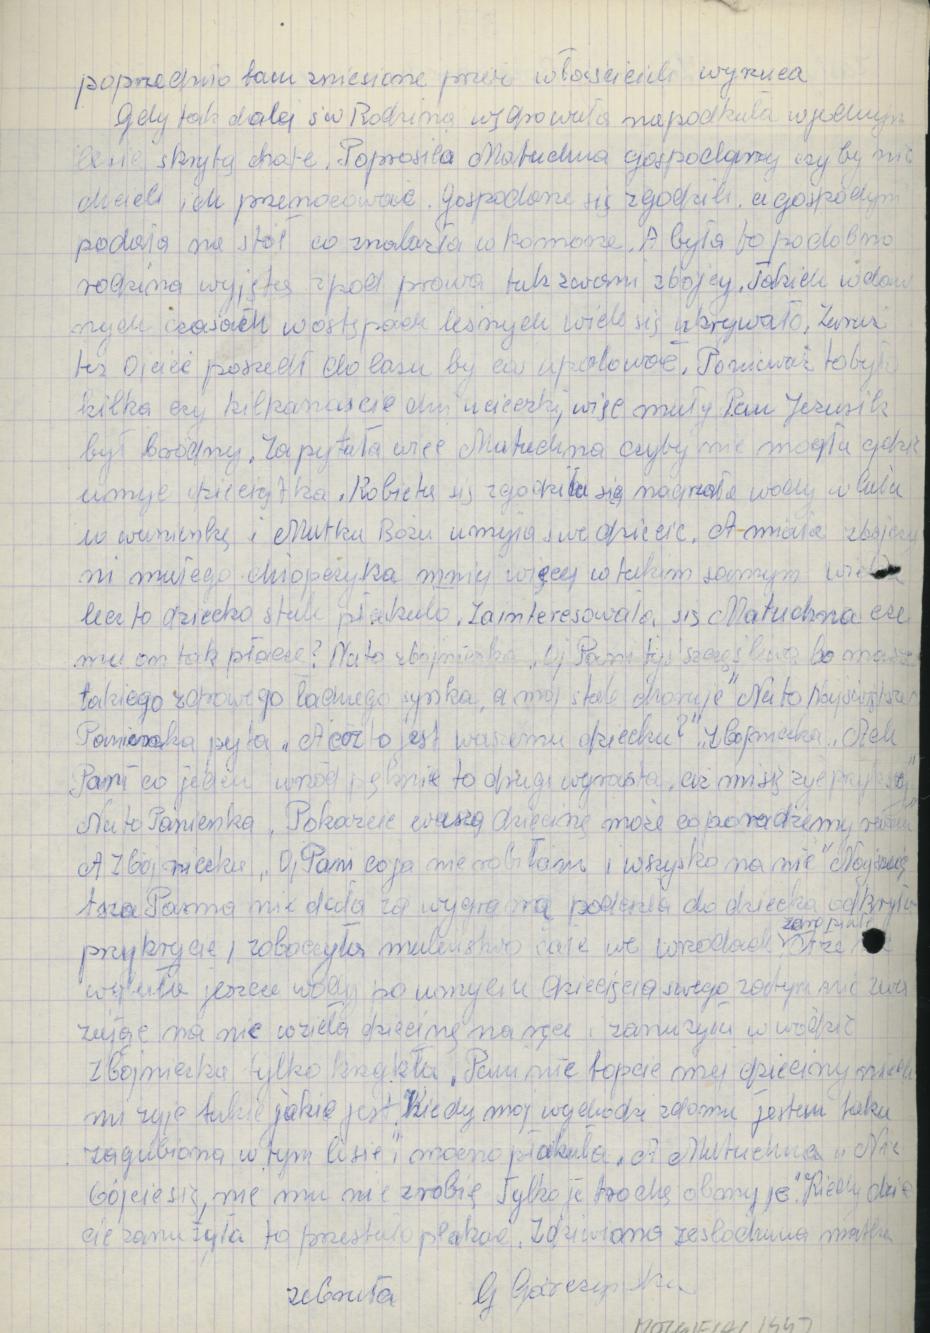 poprzednio tam zniesione przez właścicieli wyrzuca
Gdy tak dalej św Rodzina wędrowała napodkała w jednym
lesie skrytą chatę. Poprosiła Matuchna gospodarzy czy by nie
chcieli ich przenocować. Gospodarze się zgodzili. a gospodyni
podała na stół co znalazła w komorze. A była to podobno
rodzina wyjęta z pod prawa tak zwani zbójcy. Takich w daw
nych czasach w ostępach leśnych wiele się ukrywało.
też Ojciec poszedł do lasu by coś upolować. Ponieważ to było
kilka czy kilkanaście dni ucieczki, więc mały Pan Jezusik
był brudny. Zapytała więc Matuchna czyby nie mogła gdzie
umyć dzieciątka. Kobieta się zgodziła się nagrzała wody wlała
w wanienkę i Matka Boża umyła swe dziecię. A miała zbójczy
ni małego chłopczyka mniej więcej w takim samym wieku
lecz to dziecko stale płakało. Zainteresowała się Matuchna cze
mu on tak płacze? Na to zbójniczka „Oj Pani tyś szczęśliwa bo masz
takiego zdrowego ładnego synka, a mój stale choruje" Na to Najświętsza
Panienka pyta „A cóż to jest waszemu dziecku?" Zbójniczka „Ach
Pani co jeden wrzód pęknie to drugi wyrasta,
Na to Panienka „Pokażcie waszą dziecinę może co poradzimy
A Zbójniczka „Oj Pani co ja nie robiłam i wszysko na nic" Najświę
tsza Panna nie dała za wygraną podeszła do dziecka odkryła
przykrycie i zobaczyła maleństwo całe we wrzodach
jeszcze wody po umyciu Dziecięcia swego zatym nie zwa
żając na nic wzięła dziecinę na ręce i zanurzyła w wodzie
Zbójniczka tylko krzykła „Pani nie topcie mej dzieciny niech
mi żyje takie jakie jest. Kiedy mój wychodzi z domu jestem taka
zagubiona w tym lesie" i mocno płakała. A Matuchna „Nie
bójcie się, nie mu nie zrobię Tylko je trochę obmyje". Kiedy dzie
cię zanużyła to przestało płakać. Zdziwiona matka
zebrała G Gorczyńska